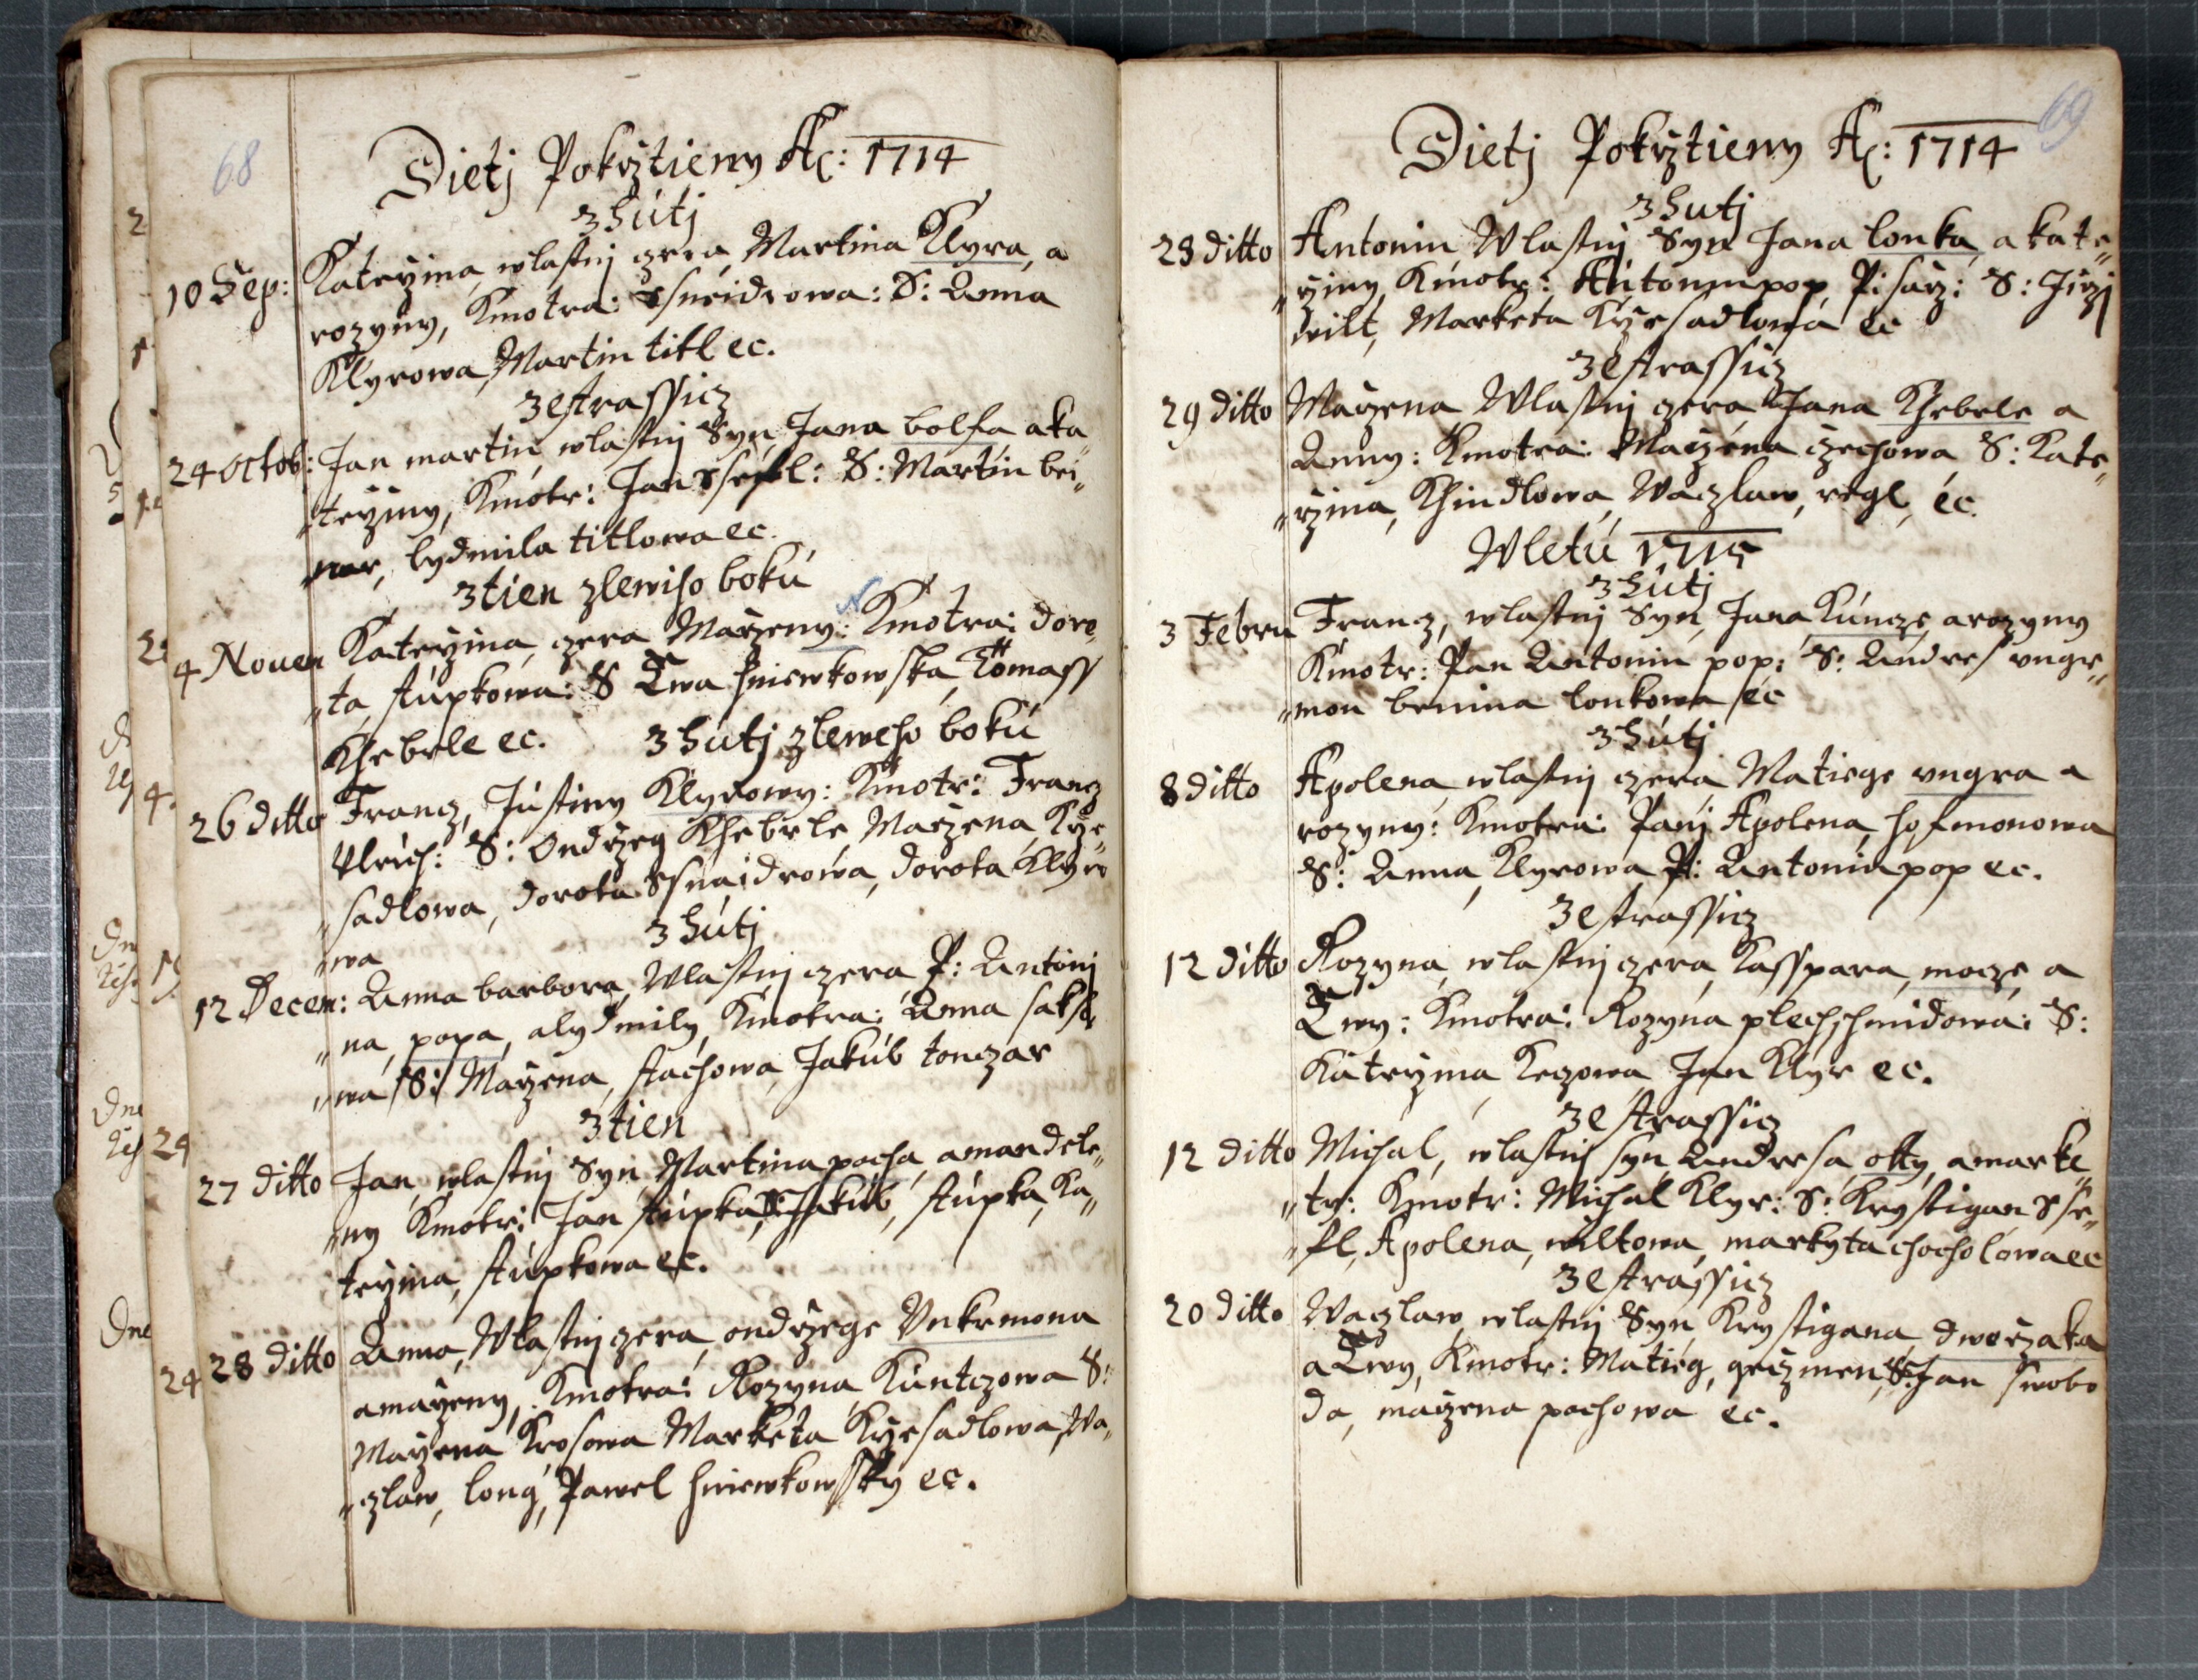 68
Dietj Pokrztieny A: 1714
z hutj
10 Sep: Katerzina, wlastnj czera, Martina Klyra, a
rozyny, Kmotra: Ssneidrowa: S: Anna
Klyrowa, Martin titl ec.
ze strassicz
24 Octob: Jan martin, wlastnj Syn Jana bolfa a ka„
„terziny, Kmotr: Jan Sseffl: S: Martin bei„
„ner, lydmila titlowa ec.
z tien z lewiho boku
4 Nouem Katerzina, czera Marzeny: Kmotra: doro„
„ta, stupkowa: S Ewa hniewkowska, Tomass
Khebrle ec. z hutj z leweho boku
26 ditto Francz, Justiny Klyrowy: Kmotr: Francz
Vlrich: S: Ondrzeg Khebrle Marzena, Krze„
„sadlowa, dorota Ssnaidrowa, dorota Klyro
„wa
z hutj
12 Decem: Anna barbora, Wlastnj czera, P: Antonj
„na, popa, a lydmily, Kmotra: Anna saks
„wa S: Marzena, stachowa, Jakub tonczar
z tien
27 ditto Jan, wlastnj Syn, Martina pocha, a mandele„
„ny Kmotr: Jan stupka, S: Jakub, stupka, Ka„
terzina, stupkowa ec.
28 ditto Anna, Wlastnj czera, ondrzege Vnkrmona
a marzeny, Kmotra: Rozyna Kuntczowa S:
Marzena Krosowa Marketa Krzesadlowa, Wa„
„czlaw, long, Pawel hniewkowsky ec.
69
Dietj Pokrztieny A: 1714
z hutj
23 ditto Antonin, Wlastnj Syn Jana lonka, a kate„
„rziny, Kmotr: Antonin pop, Pisarz: S: Jirzj
wilt, Marketa Krzesadlowa ec
ze strassicz
29 ditto Marzena Wlastnj czera Jana Khebrle a
Anny: Kmotra: Marzena czechowa S: Kate„
„rzina, Khindlowa, Waczlaw, regl, ec.
W letu 1715
z hutj
3 Febru Francz, wlastnj Syn, Jana Kuncze, a rozyny
Kmotr: Pan Antonin pop: S: Andres vngr„
„mon benina lonkowa ec
z hutj
8 ditto Apolena, wlastnj czera, Matiege vngra a
rozyny: Kmotra: Panj Apolena, hofmonowa
S: Anna, Klyrowa, P: Antonin pop ec.
ze strassicz
12 ditto Rozyna, wlastnj czera, Casspara, mocze, a
Ewy: Kmotra: Rozyna plechschmidowa: S:
Katerzina Keczowa, Jan Klyr ec.
ze strassicz
12 ditto Michal, wlastnj syn Andresa, otty, a marke„
„ty: Kmotr: Michal Klyr: S: Krystigan Sse„
„fl, Apolena, wiltowa, markyta chocholowa ec
ze strassicz
20 ditto Waczlaw, wlastnj Syn, Krystigana, dworzaka
a Ewy, Kmotr: Matieg, geczmen, S: Jan swobo
da, marzena pochowa ec.